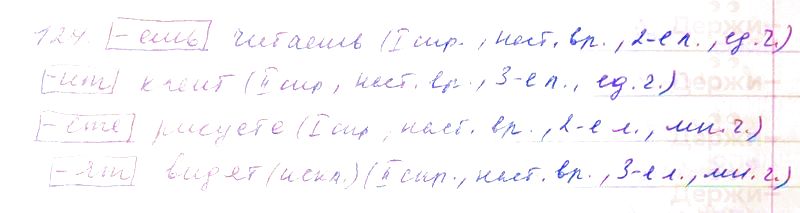 124. -ешь читаешь (I спр., наст. вр., 2-е л., ед. ч.)
-ит клеит (II спр., наст. вр., 3-е л., ед. ч.)
-ете рисуете (I спр., наст. вр., 2-е л., мн. ч.)
-ят видят (искл.) (II спр., наст. вр., 3-е л., мн. ч.)